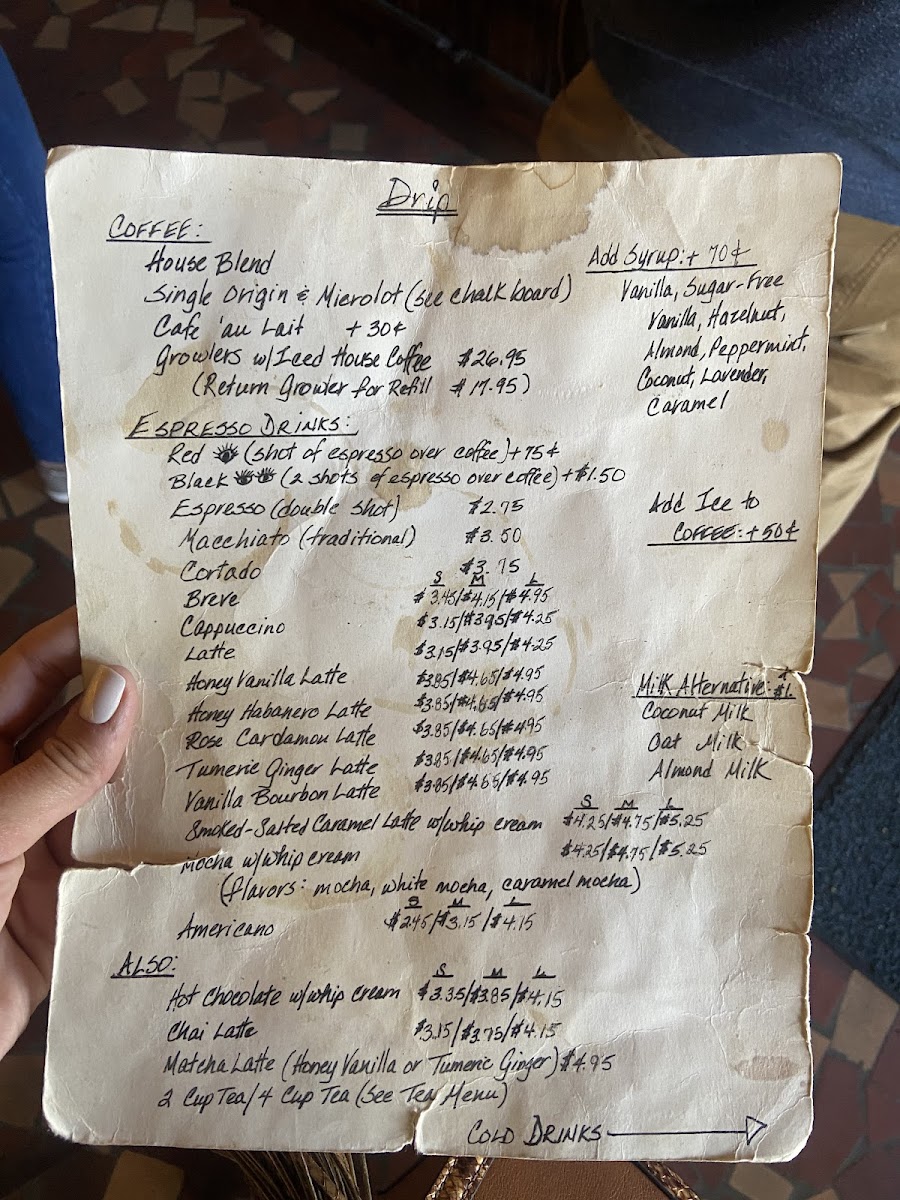 Drip
COFFEE:
House Blend
Single Origin & Microlot (see chalk board)
Cafe 'au Lait +30¢
Growlers w/Iced House Coffee $26.95
(Return Growler for Refill $17.95)
Add Syrup: + 70¢
Vanilla, Sugar-Free
Vanilla, Hazelnut,
Almond, Peppermint,
Coconut, Lavender,
Caramel
ESPRESSO DRINKS:
Red (shot of espresso over coffee) +75¢
Black (2 shots of espresso over coffee) +$1.50
Espresso (double shot) $2.75
Macchiato (traditional) $3.50
Cortado $3.75
S M L
Breve $3.45/$4.15/$4.95
Cappuccino $3.15/$3.95/$4.25
Latte $3.15/$3.95/$4.25
Honey Vanilla Latte $3.85/$4.65/$4.95
Honey Habanero Latte $3.85/$4.65/$4.95
Rose Cardamon Latte $3.85/$4.65/$4.95
Tumeric Ginger Latte $3.85/$4.65/$4.95
Vanilla Bourbon Latte $3.85/$4.65/$4.95
S M L
Smoked-Salted Caramel Latte w/whip cream $4.25/$4.75/$5.25
Mocha w/whip cream $4.25/$4.75/$5.25
(flavors: mocha, white mocha, caramel mocha)
S M L
Americano $2.45/$3.15/$4.15
Add Ice to
COFFEE: +50¢
Milk Alternative: + $1.
Coconut Milk
Oat Milk
Almond Milk
ALSO:
S M L
Hot Chocolate w/whip cream $3.35/$3.85/$4.15
Chai Latte $3.15/$3.75/$4.15
Matcha Latte (Honey Vanilla or Tumeric Ginger) $4.95
2 Cup Tea/4 Cup Tea (See Tea Menu)
COLD DRINKS →